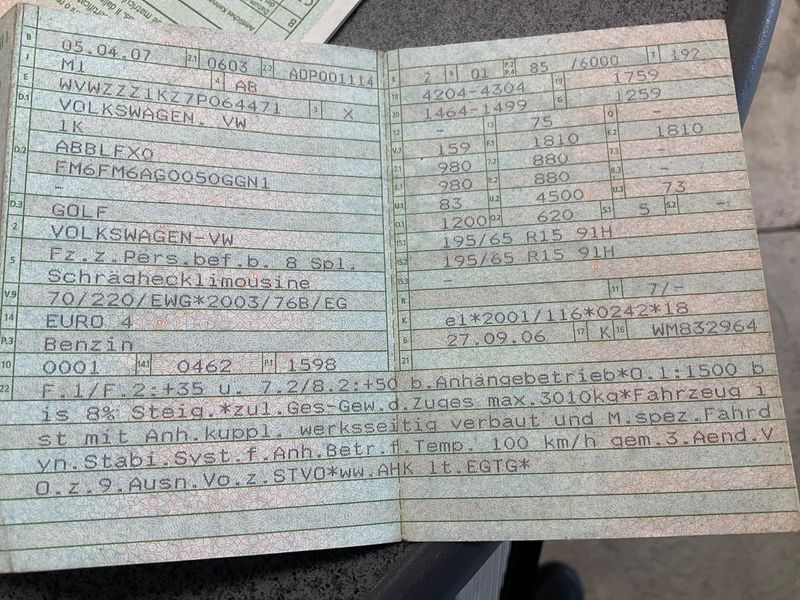 B 05.04.07 2.1 0603 2.2 ADP001114
J M1 4 AB
E WVWZZZ1KZ7P064471 3 X
D.1 VOLKSWAGEN. VW
1K
D.2 ABBLFX0
FM6FM6AG0050GGN1
–
D.3 GOLF
2 VOLKSWAGEN-VW
5 Fz.z.Pers.bef.b. 8 Spl.
Schräghecklimousine
V.9 70/220/EWG*2003/76B/EG
14 EURO 4
P.3 Benzin
10 0001 14.1 0462 P.1 1598
L 2 9 01 P.2 P.4 85 /6000 T 192
18 4204-4304 19 1759
20 1464-1499 G 1259
12 – 13 75 Q –
V.7 159 F.1 1810 F.2 1810
7.1 980 7.2 880 7.3 –
8.1 980 8.2 880 8.3 –
U.1 83 U.2 4500 U.3 73
O.1 1200 O.2 620 S.1 5 S.2 –
15.1 195/65 R15 91H
15.2 195/65 R15 91H
15.3 –
R 11 7/-
K e1*2001/116*0242*18
6 27.09.06 17 K 16 WM832964
21
22 F.1/F.2:+35 u. 7.2/8.2:+50 b.Anhängebetrieb*O.1:1500 b
is 8% Steig.*zul.Ges-Gew.d.Zuges max.3010kg*Fahrzeug i
st mit Anh.kuppl. werksseitig verbaut und M.spez.Fahrd
yn.Stabi.Syst.f.Anh.Betr.f.Temp. 100 km/h gem.3.Aend.V
O.z.9.Ausn.Vo.z.STVO*ww.AHK lt.EGTG*